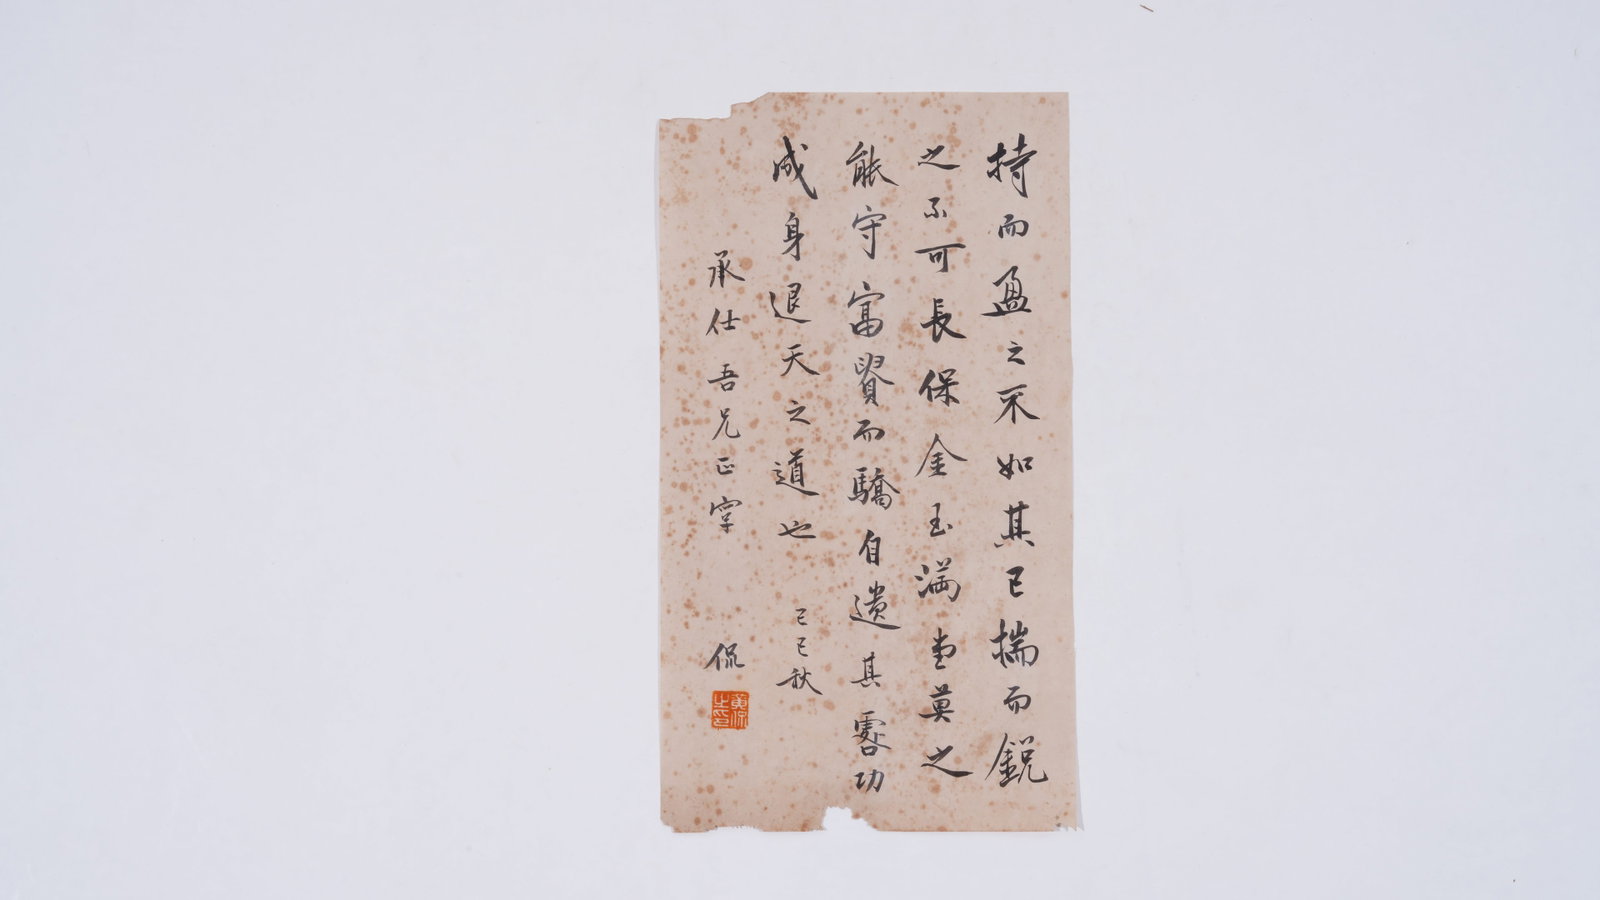 持而盈之不如其已揣而銳
之不可長保金玉滿堂莫之
能守富貴而驕自遺其咎功
成身退天之道也 己巳秋
承仕吾兄正字 侃
黃侃之印